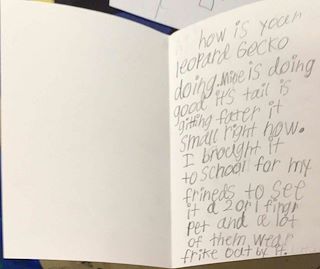 how is your
leopard Gecko
doing. Mine is doing
good it's tail is
gitting fater it
small right now.
I brought it
to school for my
frineds to see
it a 2 or 1 fingr
Pet and a lot
of them wear
frike out by it.